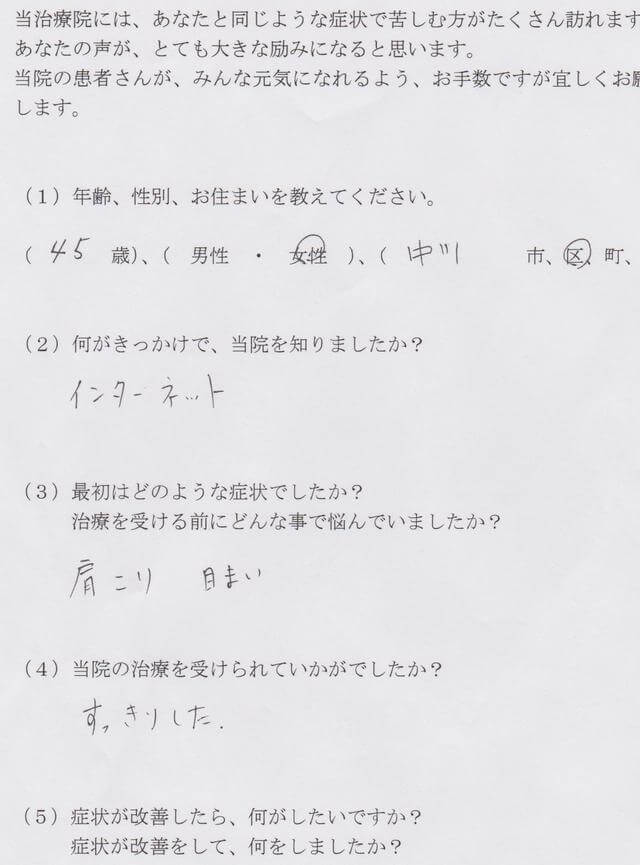 当治療院には、あなたと同じような症状で苦しむ方がたくさん訪れます
あなたの声が、とても大きな励みになると思います。
当院の患者さんが、みんな元気になれるよう、お手数ですが宜しくお願
します。
（１）年齢、性別、お住まいを教えてください。
（ 45 歳）、（ 男性 ・ 女性 ）、（ 中川 市、区、町、
（２）何がきっかけで、当院を知りましたか？
インターネット
（３）最初はどのような症状でしたか？
治療を受ける前にどんな事で悩んでいましたか？
肩こり 目まい
（４）当院の治療を受けられていかがでしたか？
すっきりした.
（５）症状が改善したら、何がしたいですか？
症状が改善をして、何をしましたか？